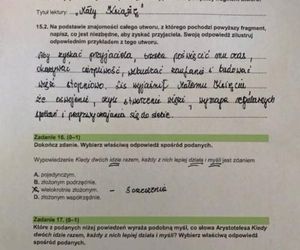 Tytuł lektury: „Mały Książę"
15.2. Na podstawie znajomości całego utworu, z którego pochodzi powyższy fragment,
napisz, co jest niezbędne, aby zyskać przyjaciela. Swoją odpowiedź zilustruj
odpowiednim przykładem z tego utworu.
Aby zyskać przyjaciela, trzeba poświęcić mu czas,
okazywać cierpliwość, wzbudzać zaufanie i budować
więź stopniowo. Lis wyjaśnił Małemu Księciu
że oswojenie, czyli stworzenie więzi, wymaga regularnych
spotkań i przyzwyczajania się do siebie.
Zadanie 16. (0–1)
Dokończ zdanie. Wybierz właściwą odpowiedź spośród podanych.
Wypowiedzenie Kiedy dwóch idzie razem, każdy z nich lepiej działa i myśli jest zdaniem
A. pojedynczym.
B. złożonym podrzędnie.
wielokrotnie złożonym. - 3 orzeczenia
D. złożonym współrzędnie.
Zadanie 17. (0–1)
Które z podanych niżej powiedzeń wyraża podobną myśl, co słowa Arystotelesa Kiedy
dwóch idzie razem, każdy z nich lepiej działa i myśli? Wybierz właściwą odpowiedź
spośród podanych.